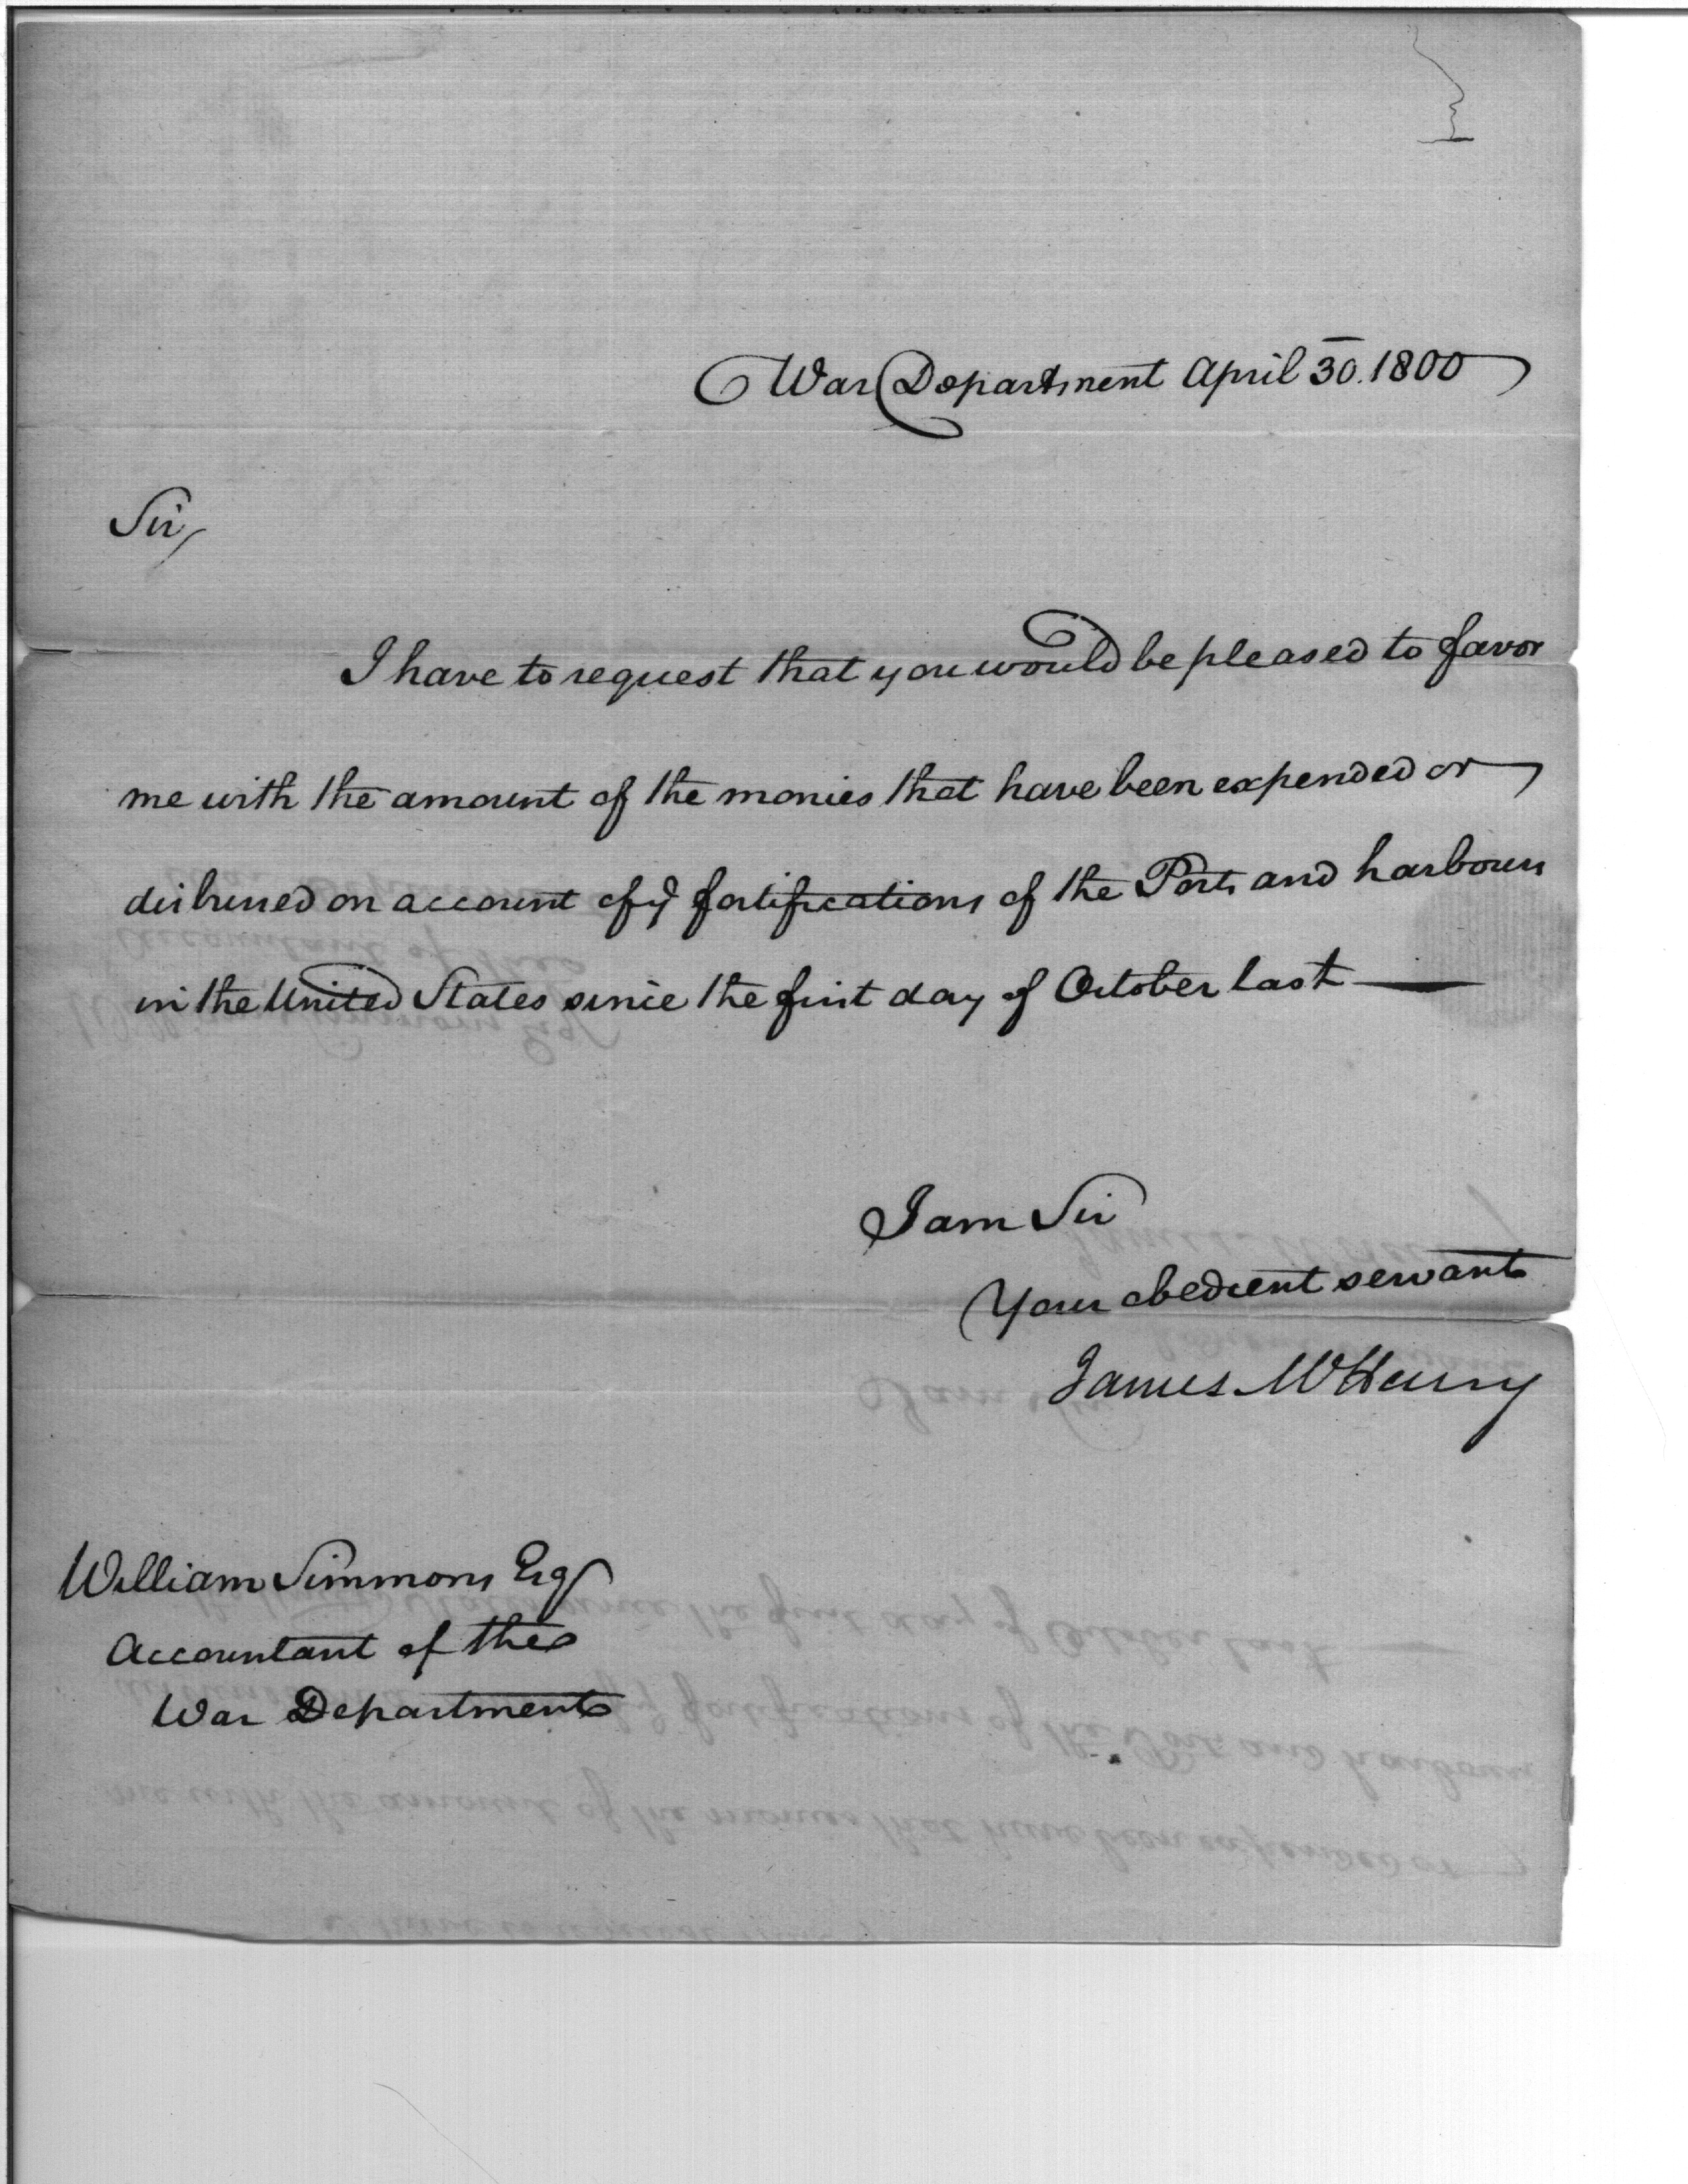 War Department April 30. 1800
Sir,
I have to request that you would be pleased to favor
me with the amount of the monies that have been expended or
disbursed on account of ye fortifications of the Ports and harbours
in the United States since the first day of October last —
I am Sir
Your obedient servant
James McHenry
William Simmons Esqr
Accountant of the
War Department